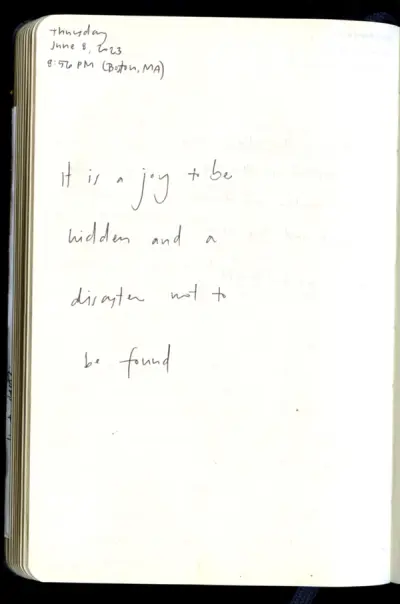 Thursday
June 8, 2023
8:56 PM (Boston, MA)
It is a joy to be
hidden and a
disaster not to
be found